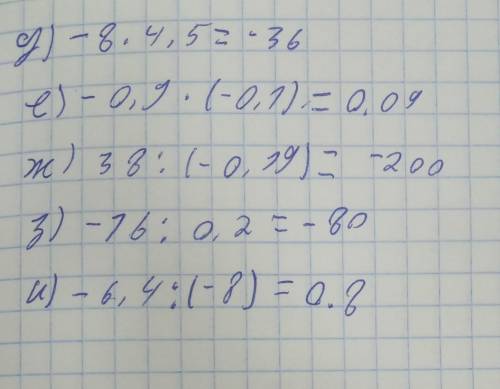 д) - 8 · 4,5 = - 36
е) - 0,9 · (-0,1) = 0.09
ж) 38 : (-0,19) = -200
з) -16 : 0,2 = - 80
и) - 6,4 : (-8) = 0.8